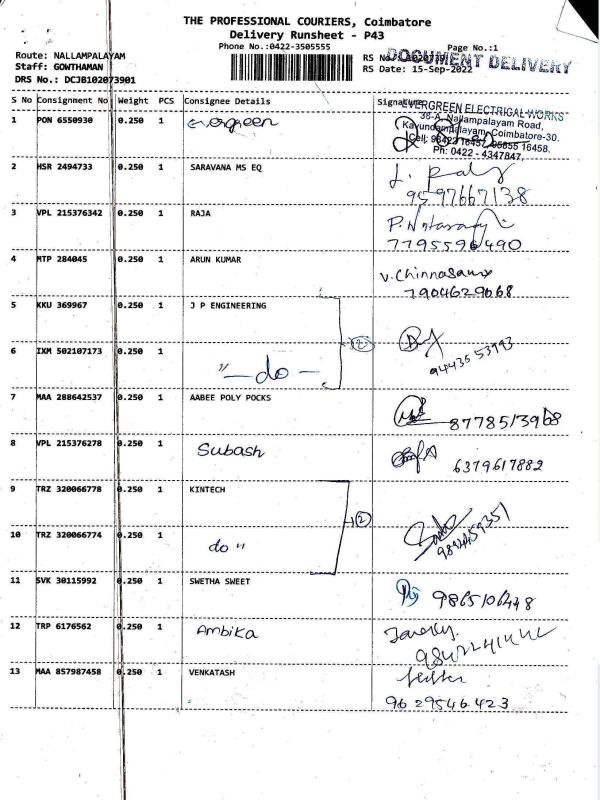 THE PROFESSIONAL COURIERS, Coimbatore
Delivery Runsheet - P43
Phone No.:0422-3505555
Page No.:1
Route: NALLAMPALAYAM
Staff: GOWTHAMAN
DRS No.: DCJB102073901
RS No.:
RS Date: 15-Sep-2022
DOCUMENT DELIVERY
S No Consignment No Weight PCS Consignee Details Signature
EVERGREEN ELECTRICAL WORKS
38-A, Nallampalayam Road,
Kavundampalayam, Coimbatore-30.
Cell: 98422 16457, 95855 16458.
Ph: 0422 - 4347847.
1 PON 6550930 0.250 1 Evergreen
2 HSR 2494733 0.250 1 SARAVANA MS EQ
9597667138
3 VPL 215376342 0.250 1 RAJA
7795596490
4 MTP 284045 0.250 1 ARUN KUMAR
V. Chinnasamy
7904629068
5 KKU 369967 0.250 1 J P ENGINEERING
2
6 IXM 502107173 0.250 1 "—do—
9443553993
7 MAA 288642537 0.250 1 AABEE POLY POCKS
8778513968
8 VPL 215376278 0.250 1 Subash
6379617882
9 TRZ 320066778 0.250 1 KINTECH
2
10 TRZ 320066774 0.250 1 do "
9894459351
11 SVK 30115992 0.250 1 SWETHA SWEET
9865106448
12 TRP 6176562 0.250 1 Ambika
13 MAA 857987458 0.250 1 VENKATASH
9629546423